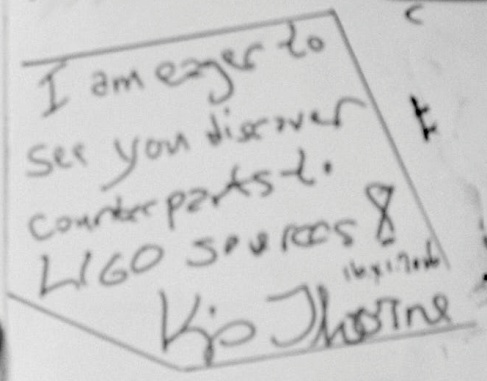 I am eager to
see you discover
counterparts to
LIGO sources!
Kip Thorne